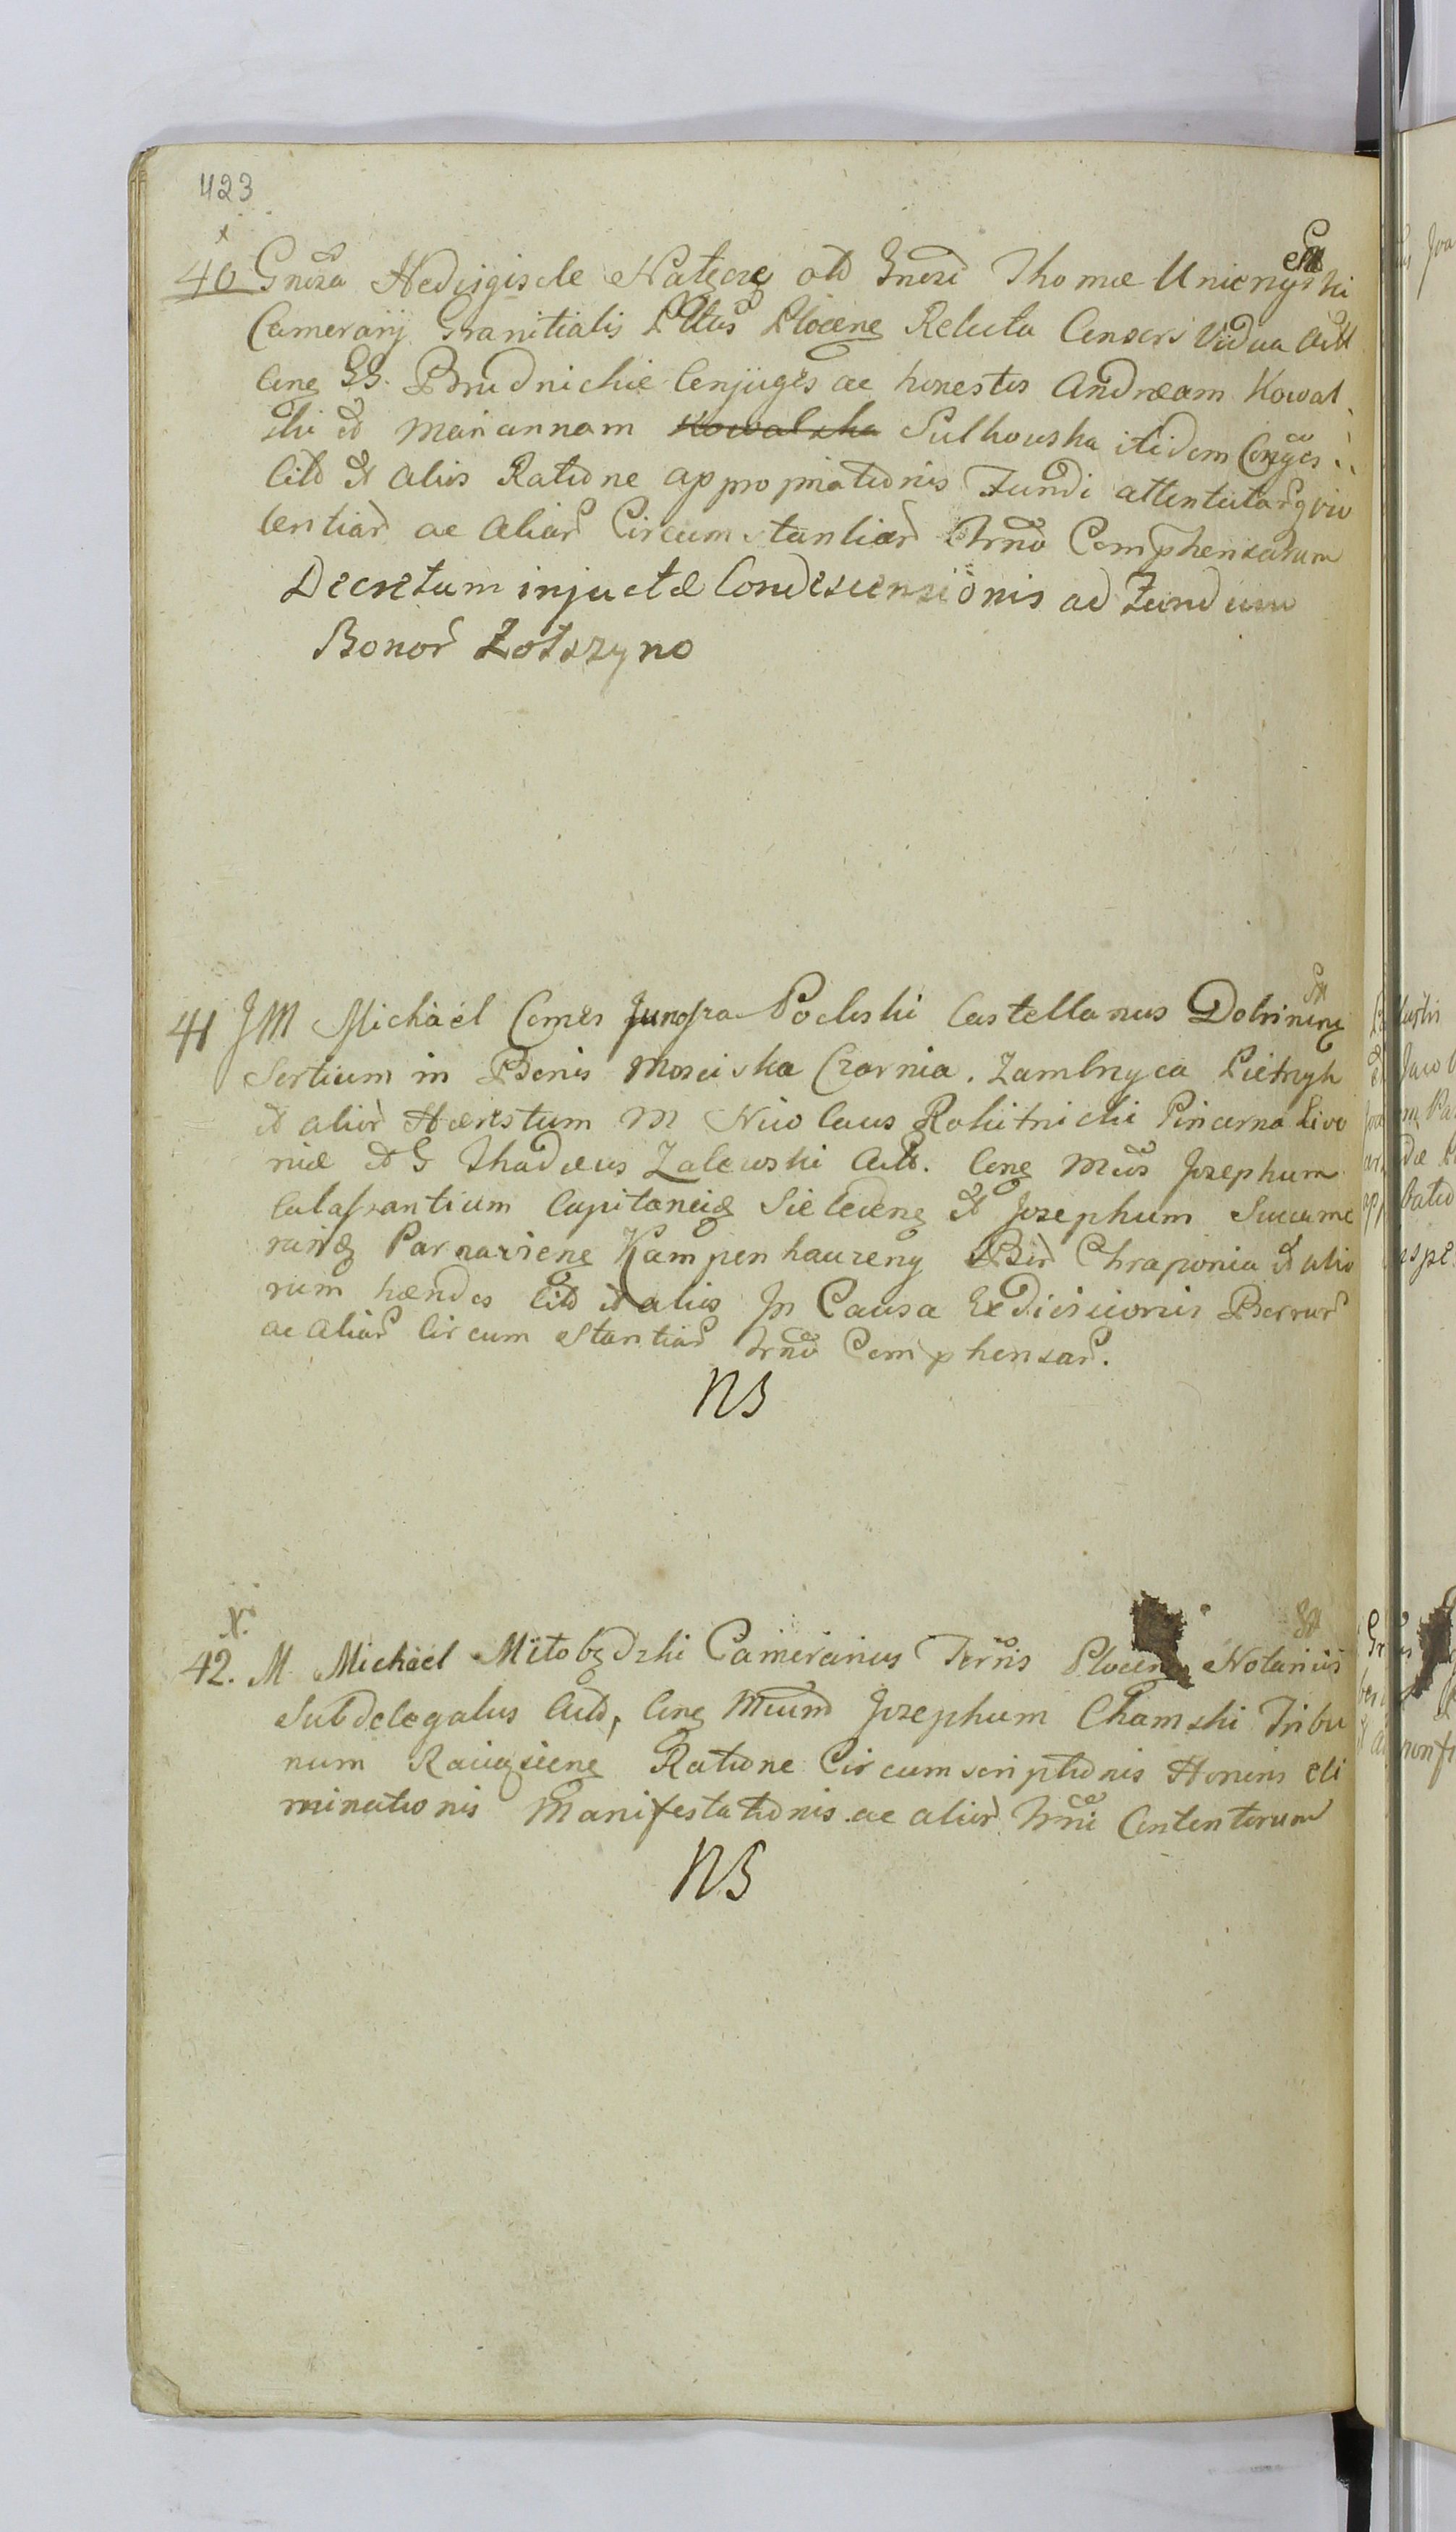 423
x
40 Gnosa Hedvigis de Natęcz olt Gnosi Thomæ Unienyski
Camerarij Granitialis Pltus Plocenę Relicta Consors Vidua Actt
Cenę GG. Brudnickie Conjuges ac honestos Andræam Kowal
ski et Mariannam Kowalska Sulkowska itidem Conges
Citt et alios Ratione appropriationis Fundi attentatar
lentiar ac aliar Circumstantiar Trno Comphensarum
Decretum injuctæ Condescensionis ad Fundum
Bonor Zotszyno
41 JM Michaël Comes Junosza Podoski Castellanus Dobrinenę
in Bonis Mosciska Czarnia. Zambrzyca Pietrzyk
et alior M Nicolaus Rokitnicki Pincerna Livo
niæ et G Thadæus Zalewski Actt. Cenę Mcos Josephum
Calassantium Capitaneię et Josephum Succame
rarię Parnaviene Kampenhauzeny Bor Chraponia et alio
rum hændes Citt et alios In Causa Exdivisionis
ac aliar Circumstantiar Trno Comphensar.
NB
X.
42. M. Michaël Mitobędzki Camerarius Terris Plocenę Notarius
Subdelegatus Actt, Cenę Mcum Josephum Chamski Tribu
num Raciąziene Ratione Circumscriptionis Honoris eli
minationis Manifestationis ac alior Trni Contentorum
NB